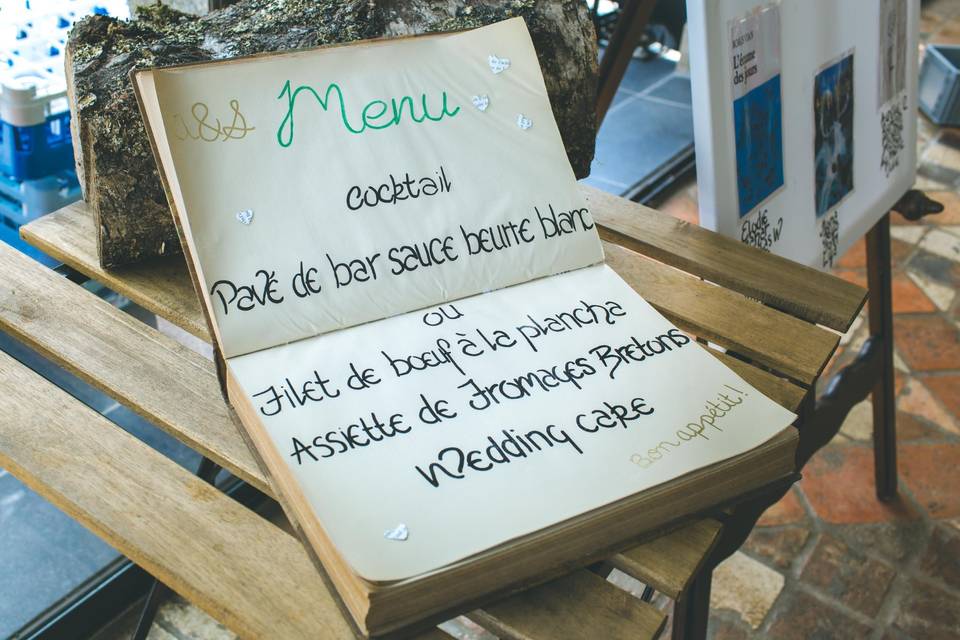 a&S Menu
cocktail
Pavé de bar sauce beurre blanc
ou
Filet de bœuf à la plancha
Assiette de Fromages Bretons
Wedding cake
Bon appétit!
BORIS VIAN
L'écume
des jours
Elodie